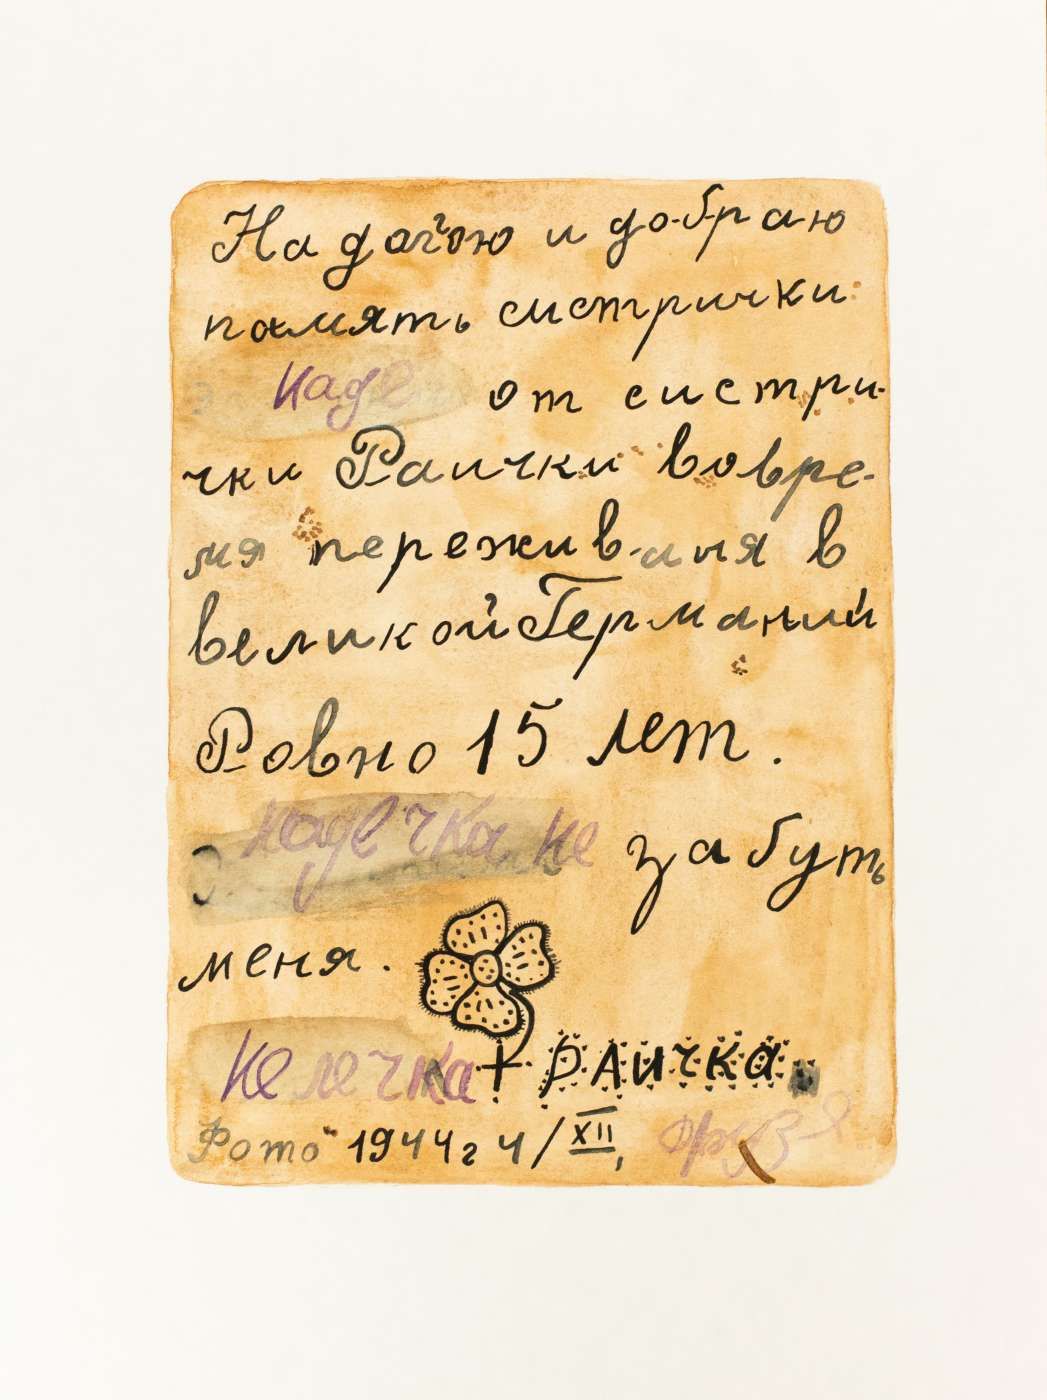 На догою и до-б-р а-ю
память систрички
Наде от систри-
чки Раички вовре-
мя пережив-иния в
великой Германий
Ровно 15 лет.
Надечка не забуть
меня.
Нелечка + РАИЧКА
Фото 1944г 4/XII,